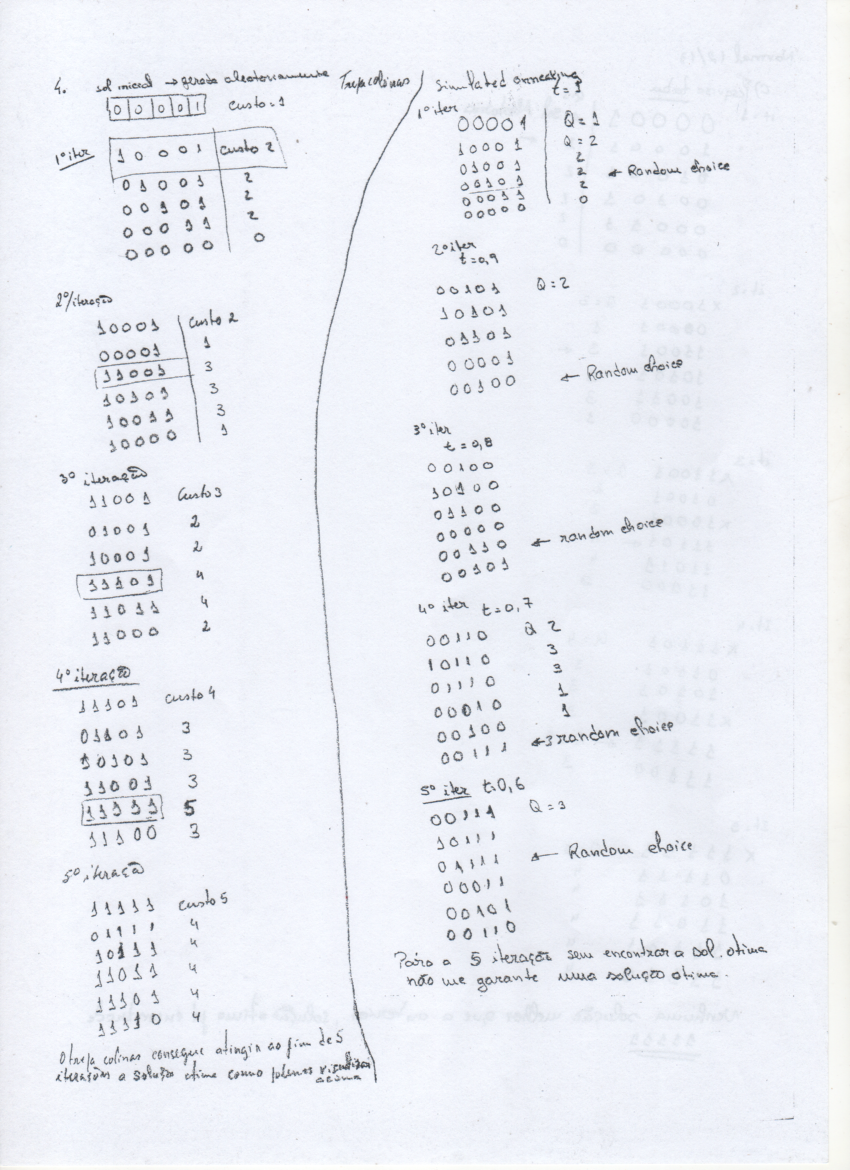 4. sol inicial → gerada aleatoriamente Trepa colinas
0 0 0 0 1 custo = 1
1º iter
1 0 0 0 1 custo 2
0 1 0 0 1 2
0 0 1 0 1 2
0 0 0 1 1 2
0 0 0 0 0 0
2º iteração
1 0 0 0 1 custo 2
0 0 0 0 1 1
1 1 0 0 1 3
1 0 1 0 1 3
1 0 0 1 1 3
1 0 0 0 0 1
3º iteração
1 1 0 0 1 custo 3
0 1 0 0 1 2
1 0 0 0 1 2
1 1 1 0 1 4
1 1 0 1 1 4
1 1 0 0 0 2
4º iteração
1 1 1 0 1 custo 4
0 1 1 0 1 3
1 0 1 0 1 3
1 1 0 0 1 3
1 1 1 1 1 5
1 1 1 0 0 3
5º iteração
1 1 1 1 1 custo 5
0 1 1 1 1 4
1 0 1 1 1 4
1 1 0 1 1 4
1 1 1 0 1 4
1 1 1 1 0 4
O trepa colinas consegue atingir ao fim de 5
iterações a solução otima como podemos visualizar
acima
Simulated annealing
t = 1
1º iter
0 0 0 0 1 Q = 1
1 0 0 0 1 Q = 2
0 1 0 0 1 2
0 0 1 0 1 2 ← Random choice
0 0 0 1 1 2
0 0 0 0 0 0
2º iter
t = 0,9
0 0 1 0 1 Q = 2
1 0 1 0 1
0 1 1 0 1
0 0 0 0 1
0 0 1 0 0 ← Random choice
3º iter
t = 0,8
0 0 1 0 0
1 0 1 0 0
0 1 1 0 0
0 0 0 0 0
0 0 1 1 0 ← random choice
0 0 1 0 1
4º iter t = 0,7
0 0 1 1 0 Q 2
1 0 1 1 0 3
0 1 1 1 0 3
0 0 0 1 0 1
0 0 1 0 0 1
0 0 1 1 1 ← 3 random choice
5º iter t=0,6
0 0 1 1 1 Q = 3
1 0 1 1 1
0 1 1 1 1 ← Random choice
0 0 0 1 1
0 0 1 0 1
0 0 1 1 0
Pára a 5 iteração sem encontrar a sol. otima
não me garante uma solução otima.